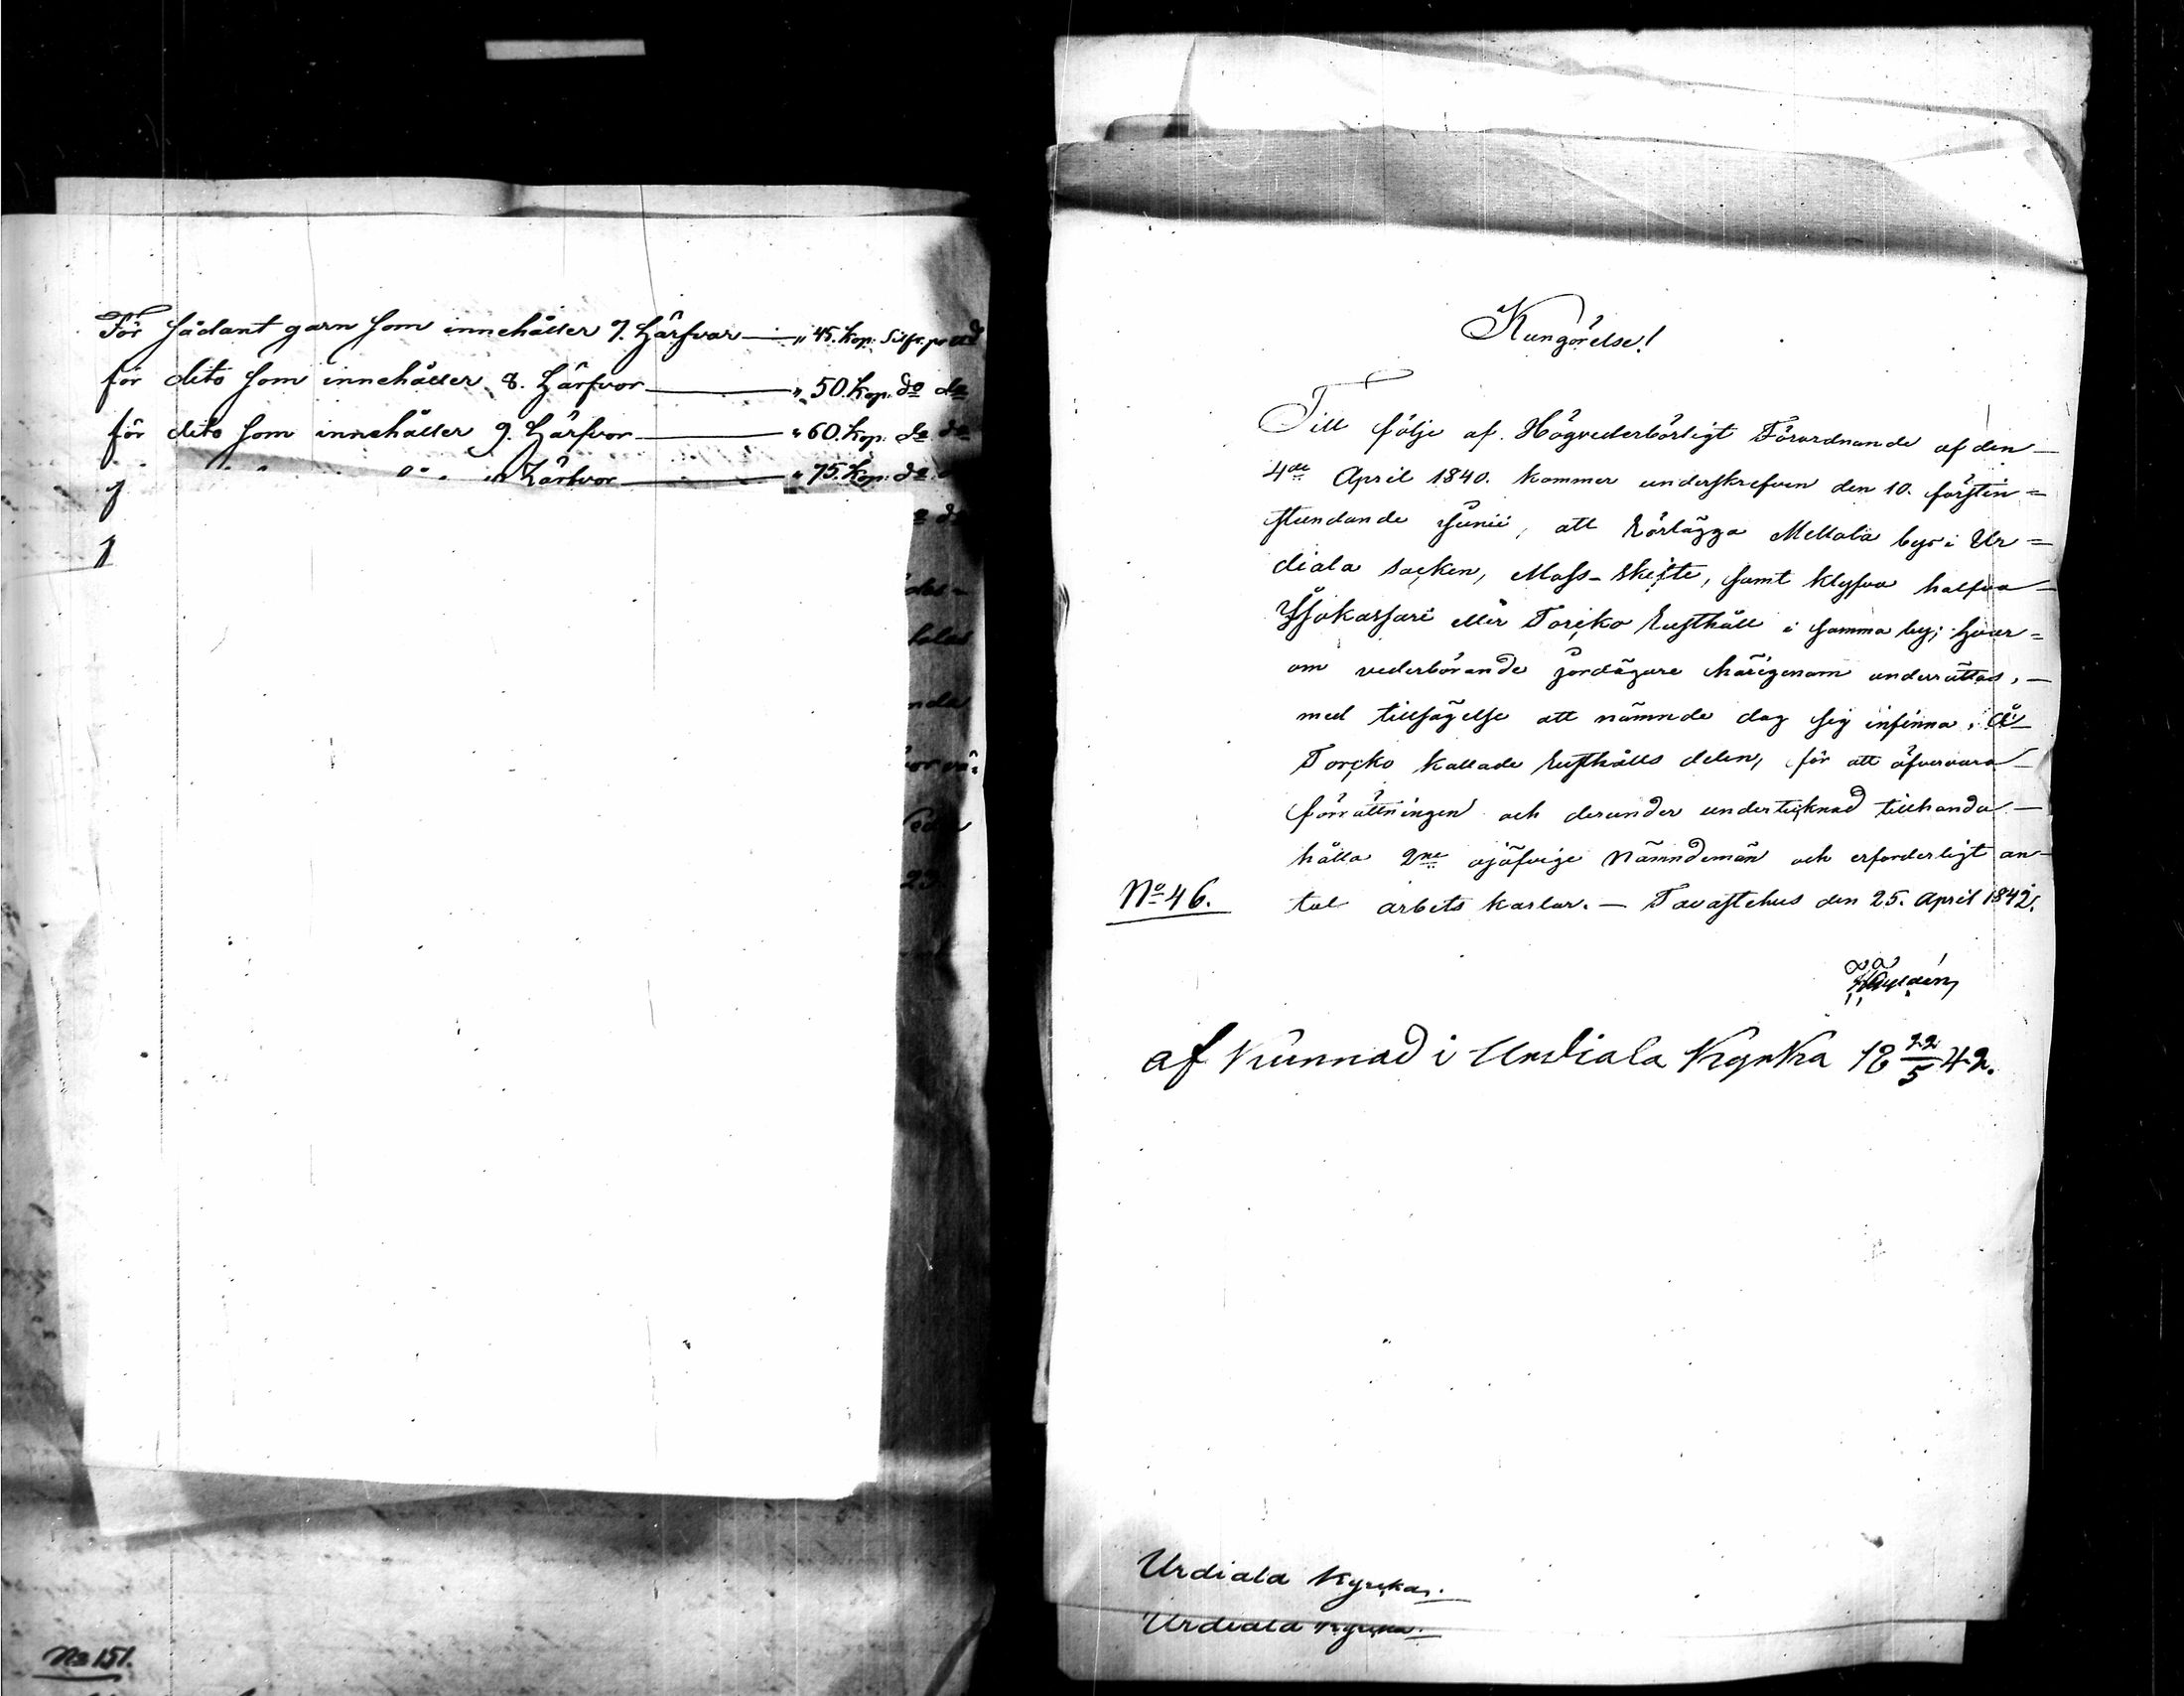 För sådant garn som innehåller 7. Härfvor — " 45. Kop: Silfr. pr
för dito som innehåller 8. Härfvor — " 50. Kop. do do
för dito som innehåller 9. Härfvor — " 60. Kop. do do
Härfvor — " 75. Kop: do
No 151.
Kungörelse!
Till följe af Högvederbörligt Förordnande af den
4de April 1840. kommer underskrefven den 10. förstin=
stundande Junii, att Rörlägga Mellola by i Ur=
diala Socken, Mass-skifte, samt klyfva halfva
eller Torcko Rusthåll i samma by; hvar=
om vederbörande jordägare härigenom underrättas,
med tillsägelse att nämnde dag sig infinna, å
Torcko kallade Rusthålls delen, för att öfvervara
förrättningen och derunder undertecknad tillhanda
hålla 2ne ojäfvige Nämndemän och erforderligt an-
No 46. tal arbets karlar. — Tavastehus den 25. April 1842.
af Kunnad i Urdiala Kyrka 18 22/5 42.
Urdiala Kyrka.
Urdiala Kyrka.